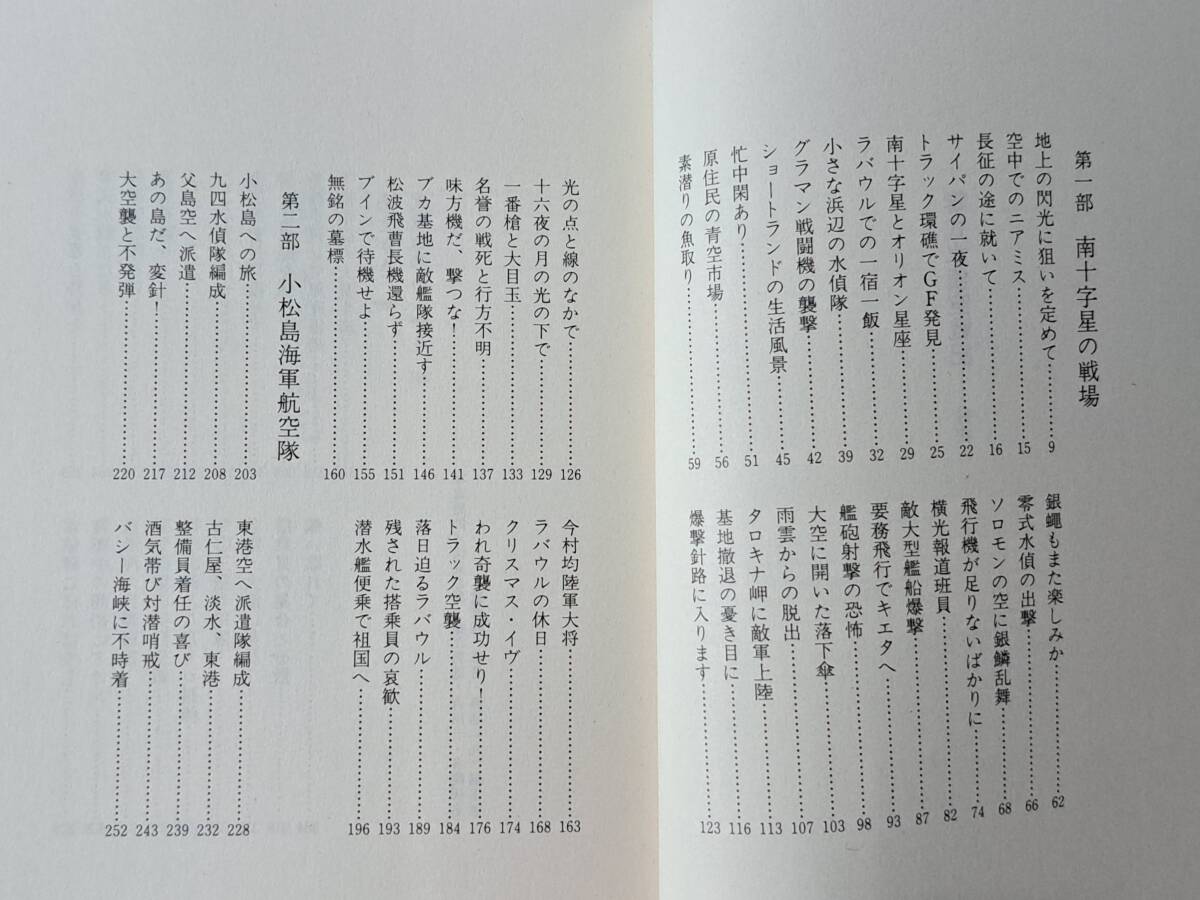 第一部　南十字星の戦場
地上の閃光に狙いを定めて……9
空中でのニアミス……15
長征の途に就いて……16
サイパンの一夜……22
トラック環礁でGF発見……25
南十字星とオリオン星座……29
ラバウルでの一宿一飯……32
小さな浜辺の水偵隊……39
グラマン戦闘機の襲撃……42
ショートランドの生活風景……45
忙中閑あり……51
原住民の青空市場……56
素潜りの魚取り……59
銀蠅もまた楽しみか……62
零式水偵の出撃……66
ソロモンの空に銀鱗乱舞……68
飛行機が足りないばかりに……74
横光報道班員……82
敵大型艦船爆撃……87
要務飛行でキエタへ……93
艦砲射撃の恐怖……98
大空に開いた落下傘……103
雨雲からの脱出……107
タロキナ岬に敵軍上陸……113
基地撤退の憂き目に……116
爆撃針路に入ります……123
光の点と線のなかで……126
十六夜の月の光の下で……129
一番槍と大目玉……133
名誉の戦死と行方不明……137
味方機だ、撃つな！……141
ブカ基地に敵艦隊接近す……146
松波飛曹長機還らず……151
ブインで待機せよ……155
無銘の墓標……160
今村均陸軍大将……163
ラバウルの休日……168
クリスマス・イヴ……174
われ奇襲に成功せり！……176
トラック空襲……184
落日迫るラバウル……189
残された搭乗員の哀歓……193
潜水艦便乗で祖国へ……196
第二部　小松島海軍航空隊
小松島への旅……203
九四水偵隊編成……208
父島空へ派遣……212
あの島だ、変針！……217
大空襲と不発弾……220
東港空へ派遣隊編成……228
古仁屋、淡水、東港……232
整備員着任の喜び……239
酒気帯び対潜哨戒……243
バシー海峡に不時着……252